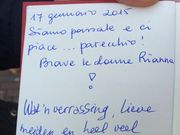 17 gennaio 2015
Siamo passate e ci
piace ... parecchio!
Brave le donne Rianne
!
Wat'n verrassing, lieve
meiden en heel veel